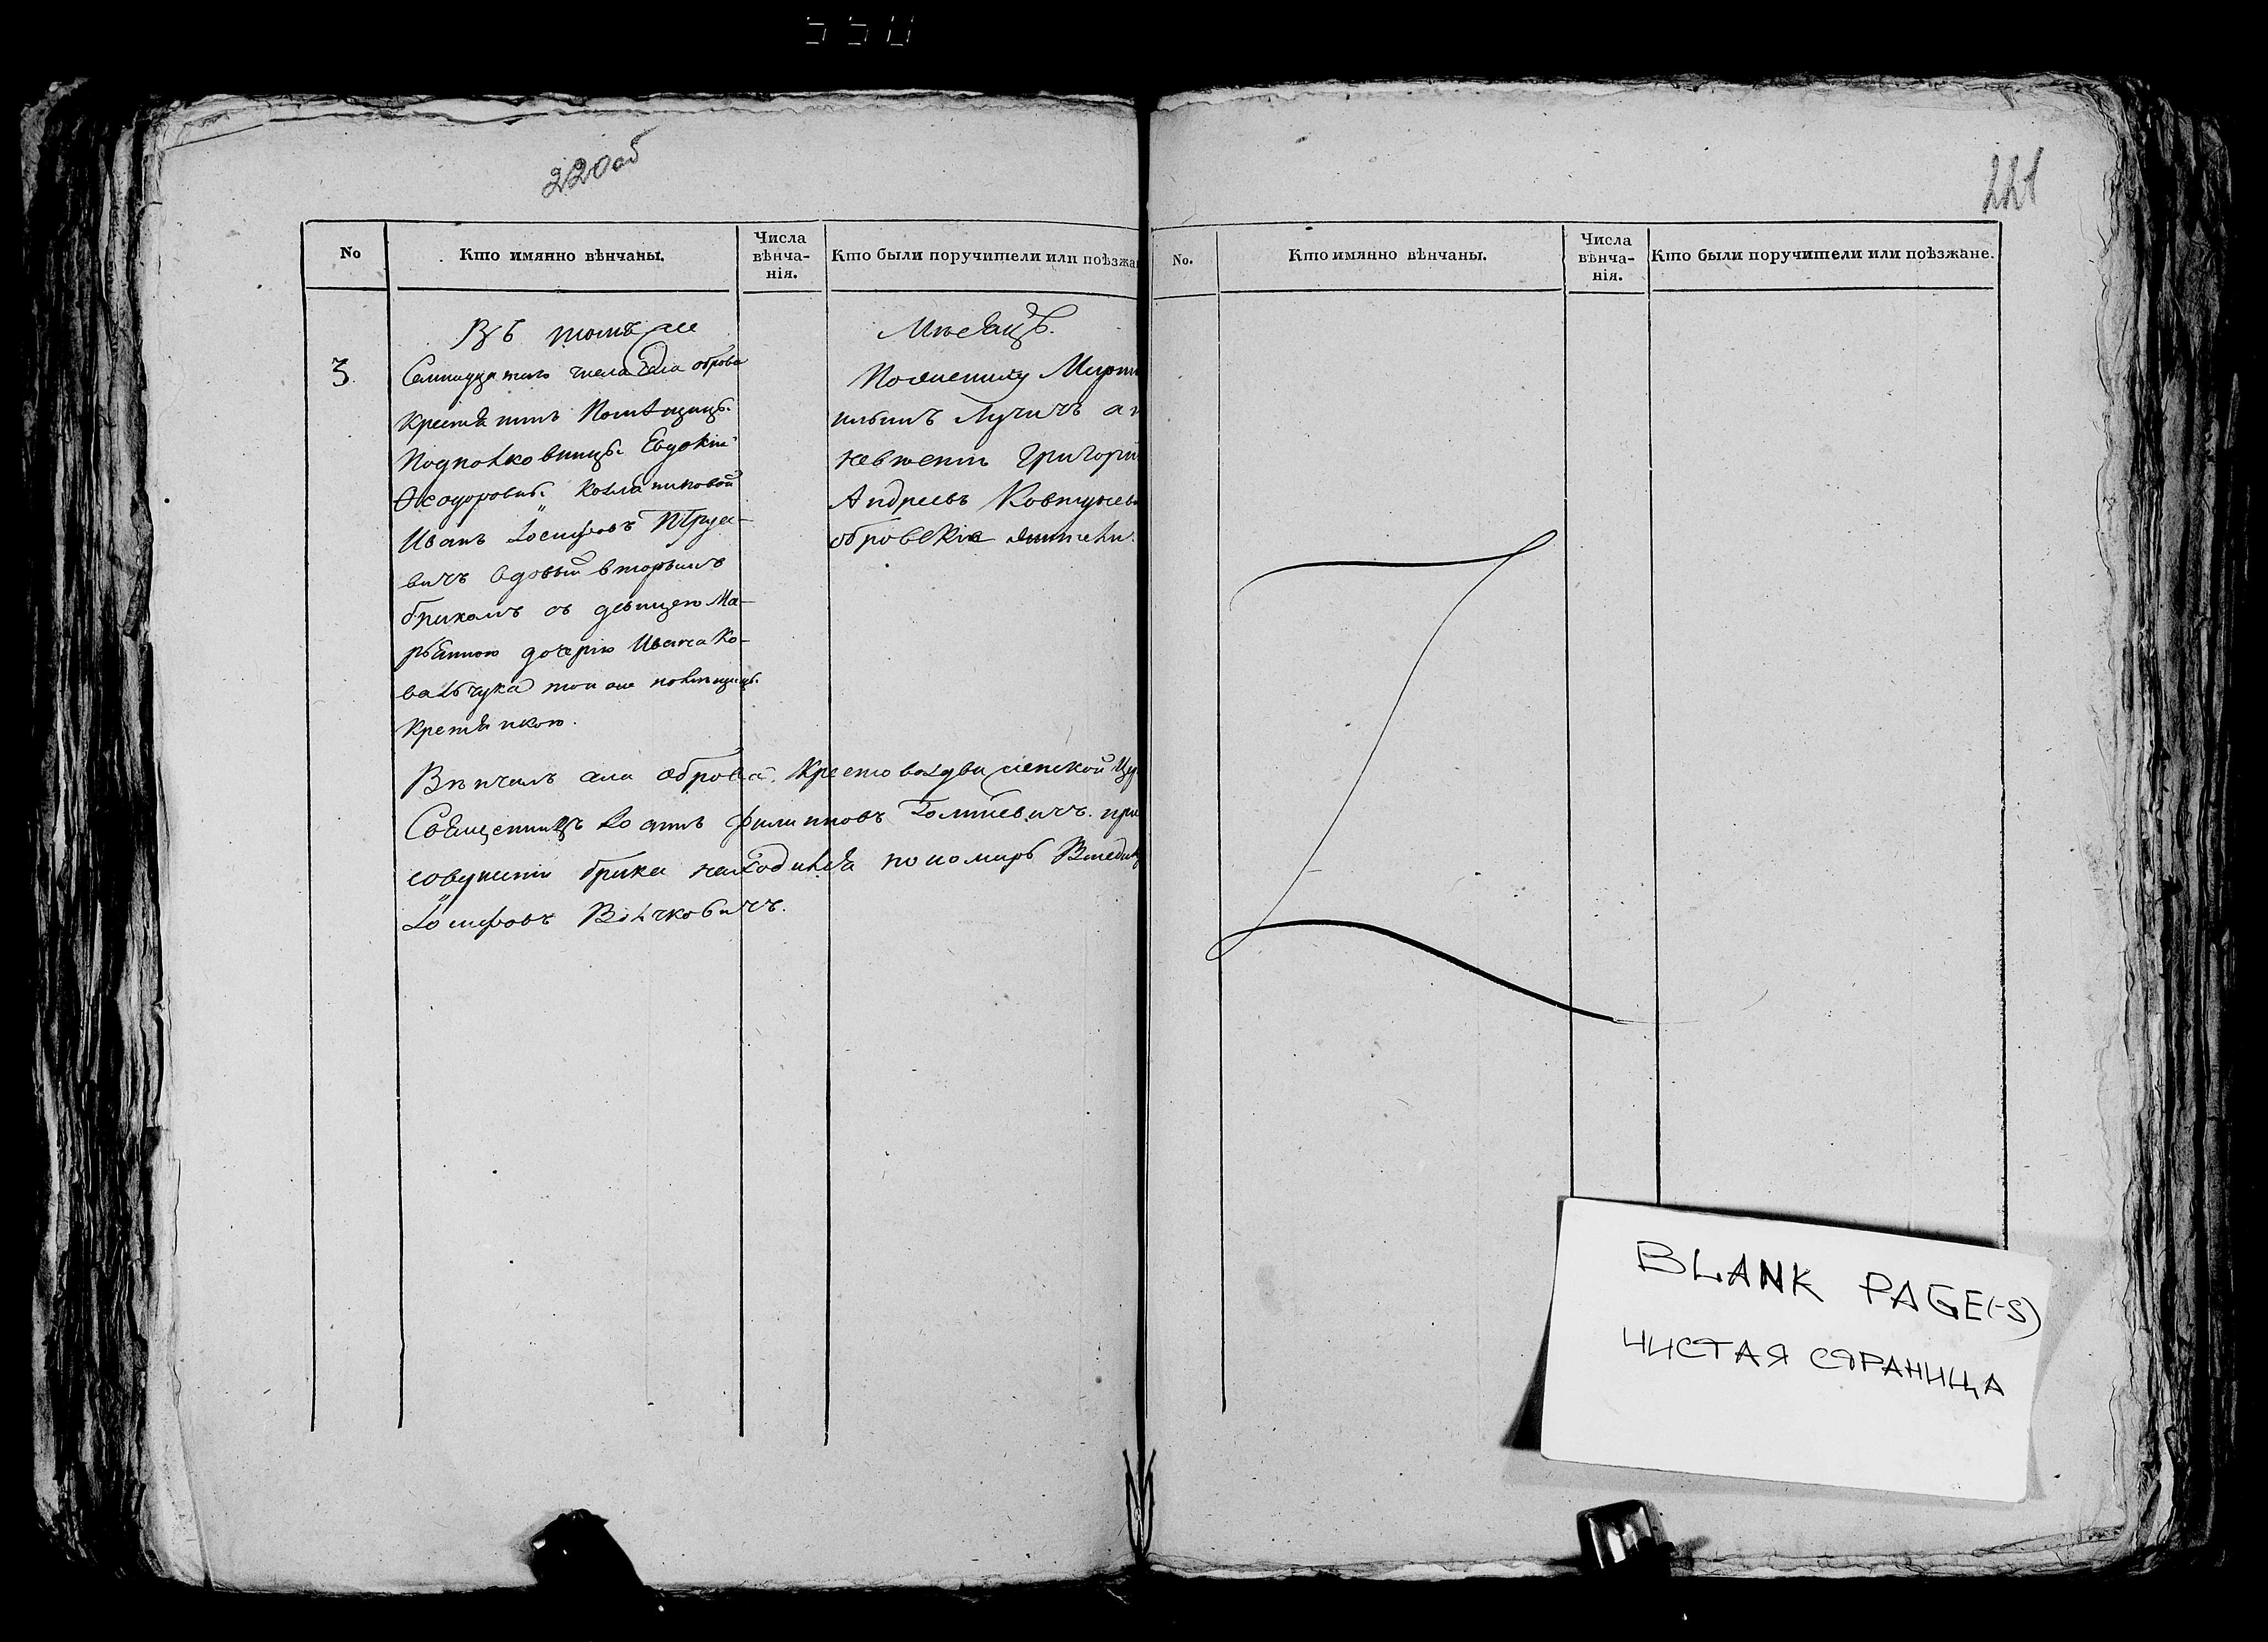 550
220об
No
Кто имянно вѣнчаны.
Числа
вѣнча-
нія.
Кто были поручители или поѣзжа
Въ томъ же
Мѣсяцѣ.
3.
Семнадцатого числа села оброва
крестянинъ Помѣщицы
Подполковницы Евдокіи
Ѳеодоровны
Иванъ Іосифовъ
вичъ вдовый вторымъ
бракомъ съ девицею Ма-
рьянною дочерію Ивана Ко-
вальчука той же помѣщицы
Кретянкою.
По женику Марти
Лучичъ
невжени Григорій
Андреевъ Ковтуневи
обровскіе жители.
Вѣнчалъ села оброва Крестовоздвиженской Цер
Священникъ Іоаннъ Филиповъ при
совершеніи брака находился пономарь
Іосифовъ Вѣлчковичъ.
221
No.
Кто имянно вѣнчаны.
Числа
вѣнча-
нія.
Кто были поручители или поѣзжане.
BLANK PAGE(-S)
ЧИСТАЯ СТРАНИЦА